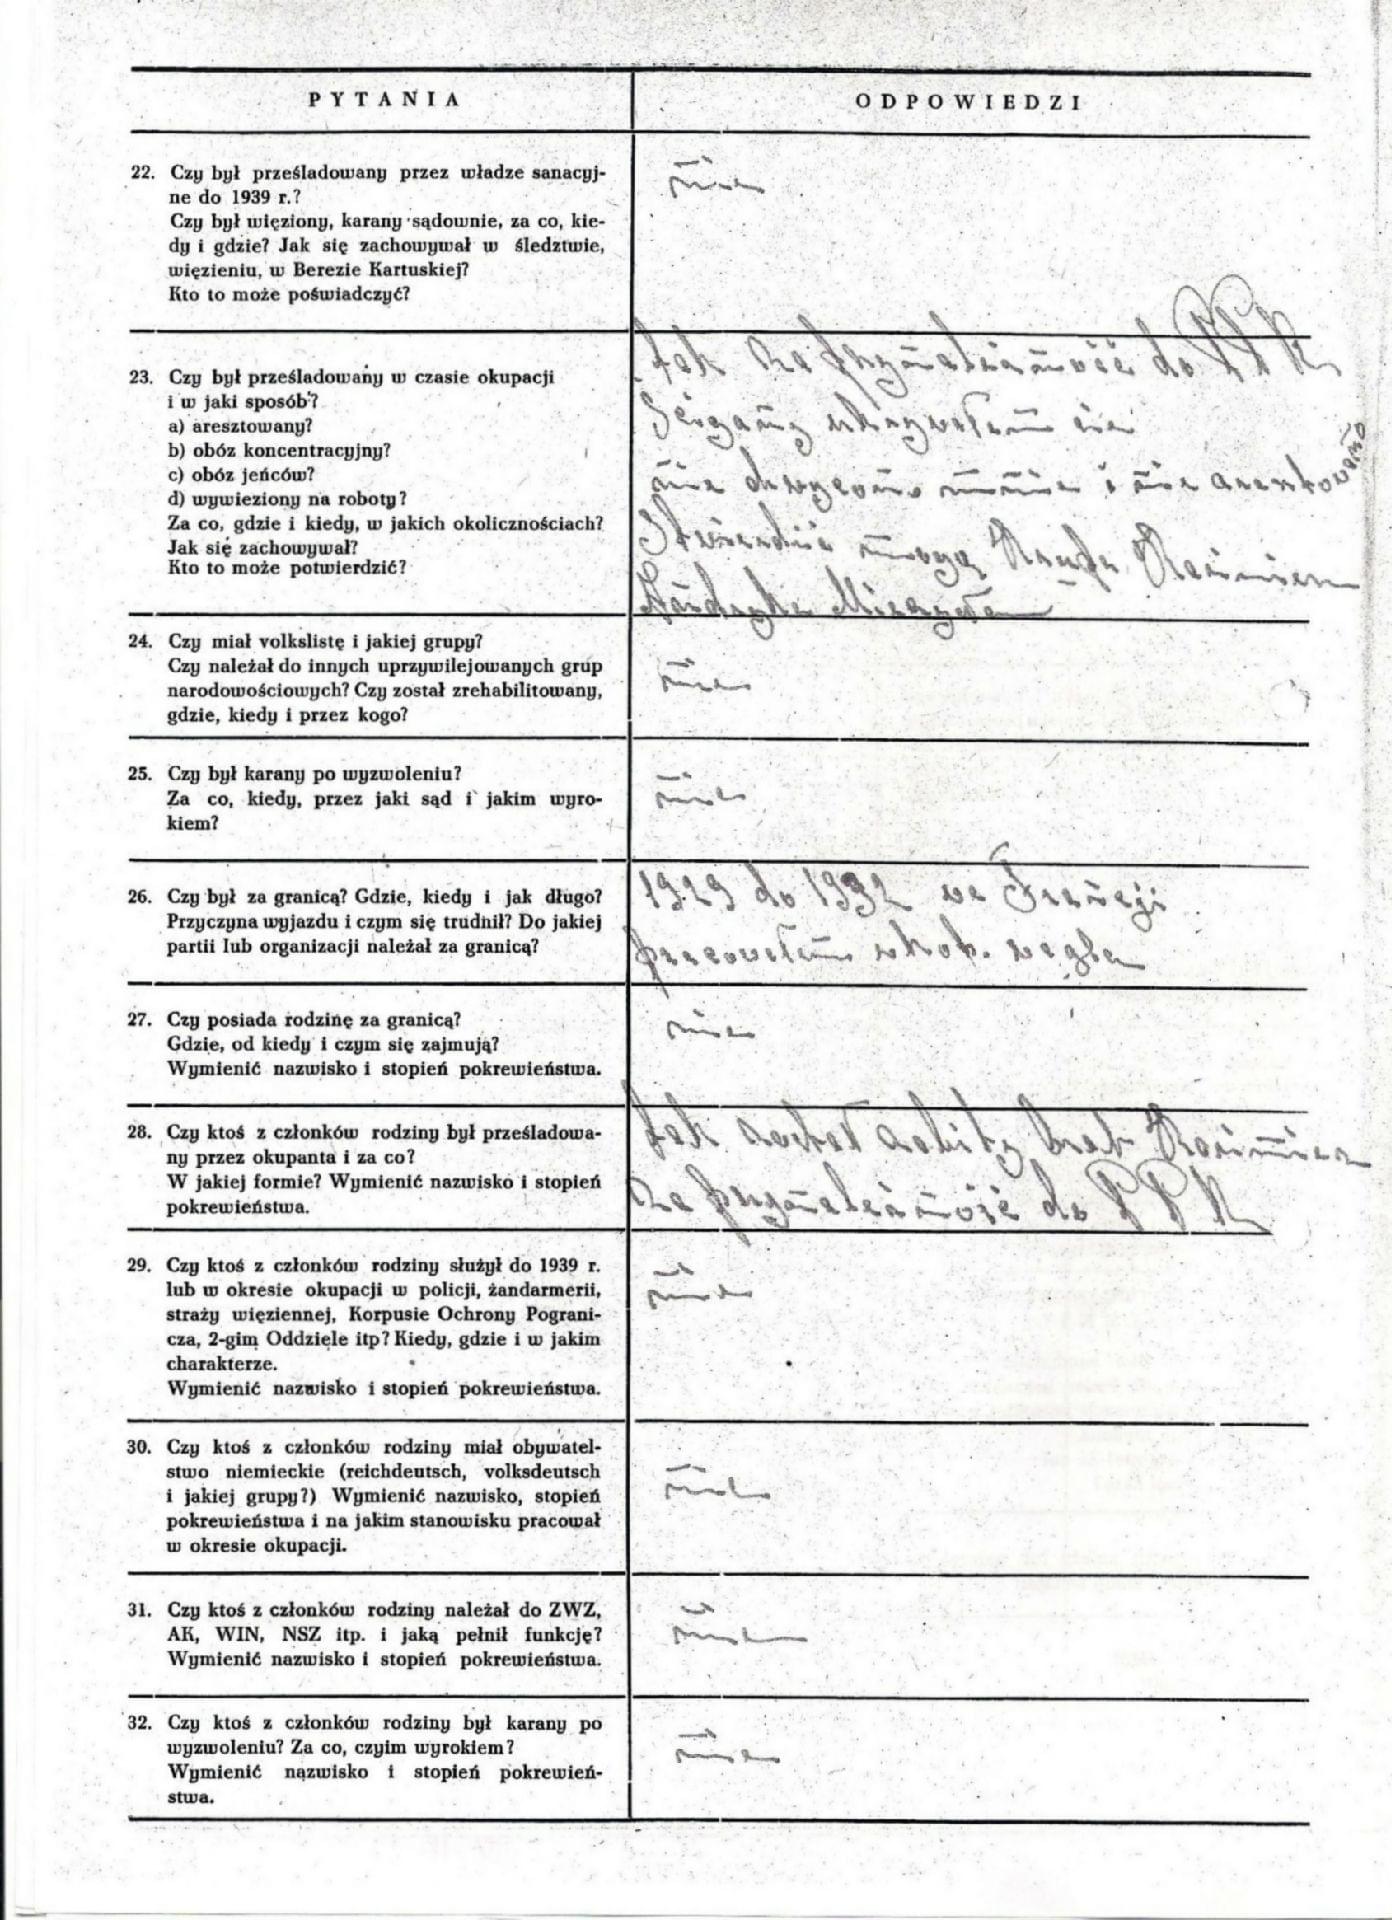 PYTANIA
ODPOWIEDZI
22. Czy był prześladowany przez władze sanacyj-
ne do 1939 r.?
Czy był więziony, karany sądownie, za co, kie-
dy i gdzie? Jak się zachowywał w śledztwie,
więzieniu, w Berezie Kartuskiej?
Kto to może poświadczyć?
nie
23. Czy był prześladowany w czasie okupacji
i w jaki sposób?
a) aresztowany?
b) obóz koncentracyjny?
c) obóz jeńców?
d) wywieziony na roboty?
Za co, gdzie i kiedy, w jakich okolicznościach?
Jak się zachowywał?
Kto to może potwierdzić?
Tak za przynależność do PPR
Ścigany ukrywałem się
nie chwycono mnie i nie aresztowano
Stwierdzić mogą Kazimierz
24. Czy miał volkslistę i jakiej grupy?
Czy należał do innych uprzywilejowanych grup
narodowościowych? Czy został zrehabilitowany,
gdzie, kiedy i przez kogo?
nie
25. Czy był karany po wyzwoleniu?
Za co, kiedy, przez jaki sąd i jakim wyro-
kiem?
nie
26. Czy był za granicą? Gdzie, kiedy i jak długo?
Przyczyna wyjazdu i czym się trudnił? Do jakiej
partii lub organizacji należał za granicą?
1929 do 1932 we Francji
pracowałem w kop. węgla
27. Czy posiada rodzinę za granicą?
Gdzie, od kiedy i czym się zajmują?
Wymienić nazwisko i stopień pokrewieństwa.
nie
28. Czy ktoś z członków rodziny był prześladowa-
ny przez okupanta i za co?
W jakiej formie? Wymienić nazwisko i stopień
pokrewieństwa.
Tak został zabity brat Kazimierz
za przynależność do PPR
29. Czy ktoś z członków rodziny służył do 1939 r.
lub w okresie okupacji w policji, żandarmerii,
straży więziennej, Korpusie Ochrony Pograni-
cza, 2-gim Oddziele itp? Kiedy, gdzie i w jakim
charakterze.
Wymienić nazwisko i stopień pokrewieństwa.
nie
30. Czy ktoś z członków rodziny miał obywatel-
stwo niemieckie (reichdeutsch, volksdeutsch
i jakiej grupy?) Wymienić nazwisko, stopień
pokrewieństwa i na jakim stanowisku pracował
w okresie okupacji.
nie
31. Czy ktoś z członków rodziny należał do ZWZ,
AK, WIN, NSZ itp. i jaką pełnił funkcję?
Wymienić nazwisko i stopień pokrewieństwa.
nie
32. Czy ktoś z członków rodziny był karany po
wyzwoleniu? Za co, czyim wyrokiem?
Wymienić nazwisko i stopień pokrewień-
stwa.
nie